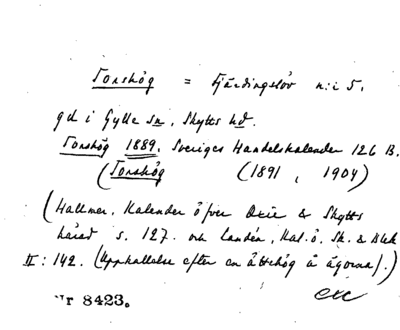 Torshög = Fjärdingslöv n:i 5.
gd i Gylle sn, Skytts hd.
Torshög 1889. Sveriges Handelskalender 126 B.
(Torshög (1891, 1904)
(Hallmer, Kalender öfver Oxie & Skytts
härad s. 127. och Landén, Kal. ö. Sk. & Blek
II: 142. (Uppkallelse efter en ättehög å ägorna/.)
Nr 8423.